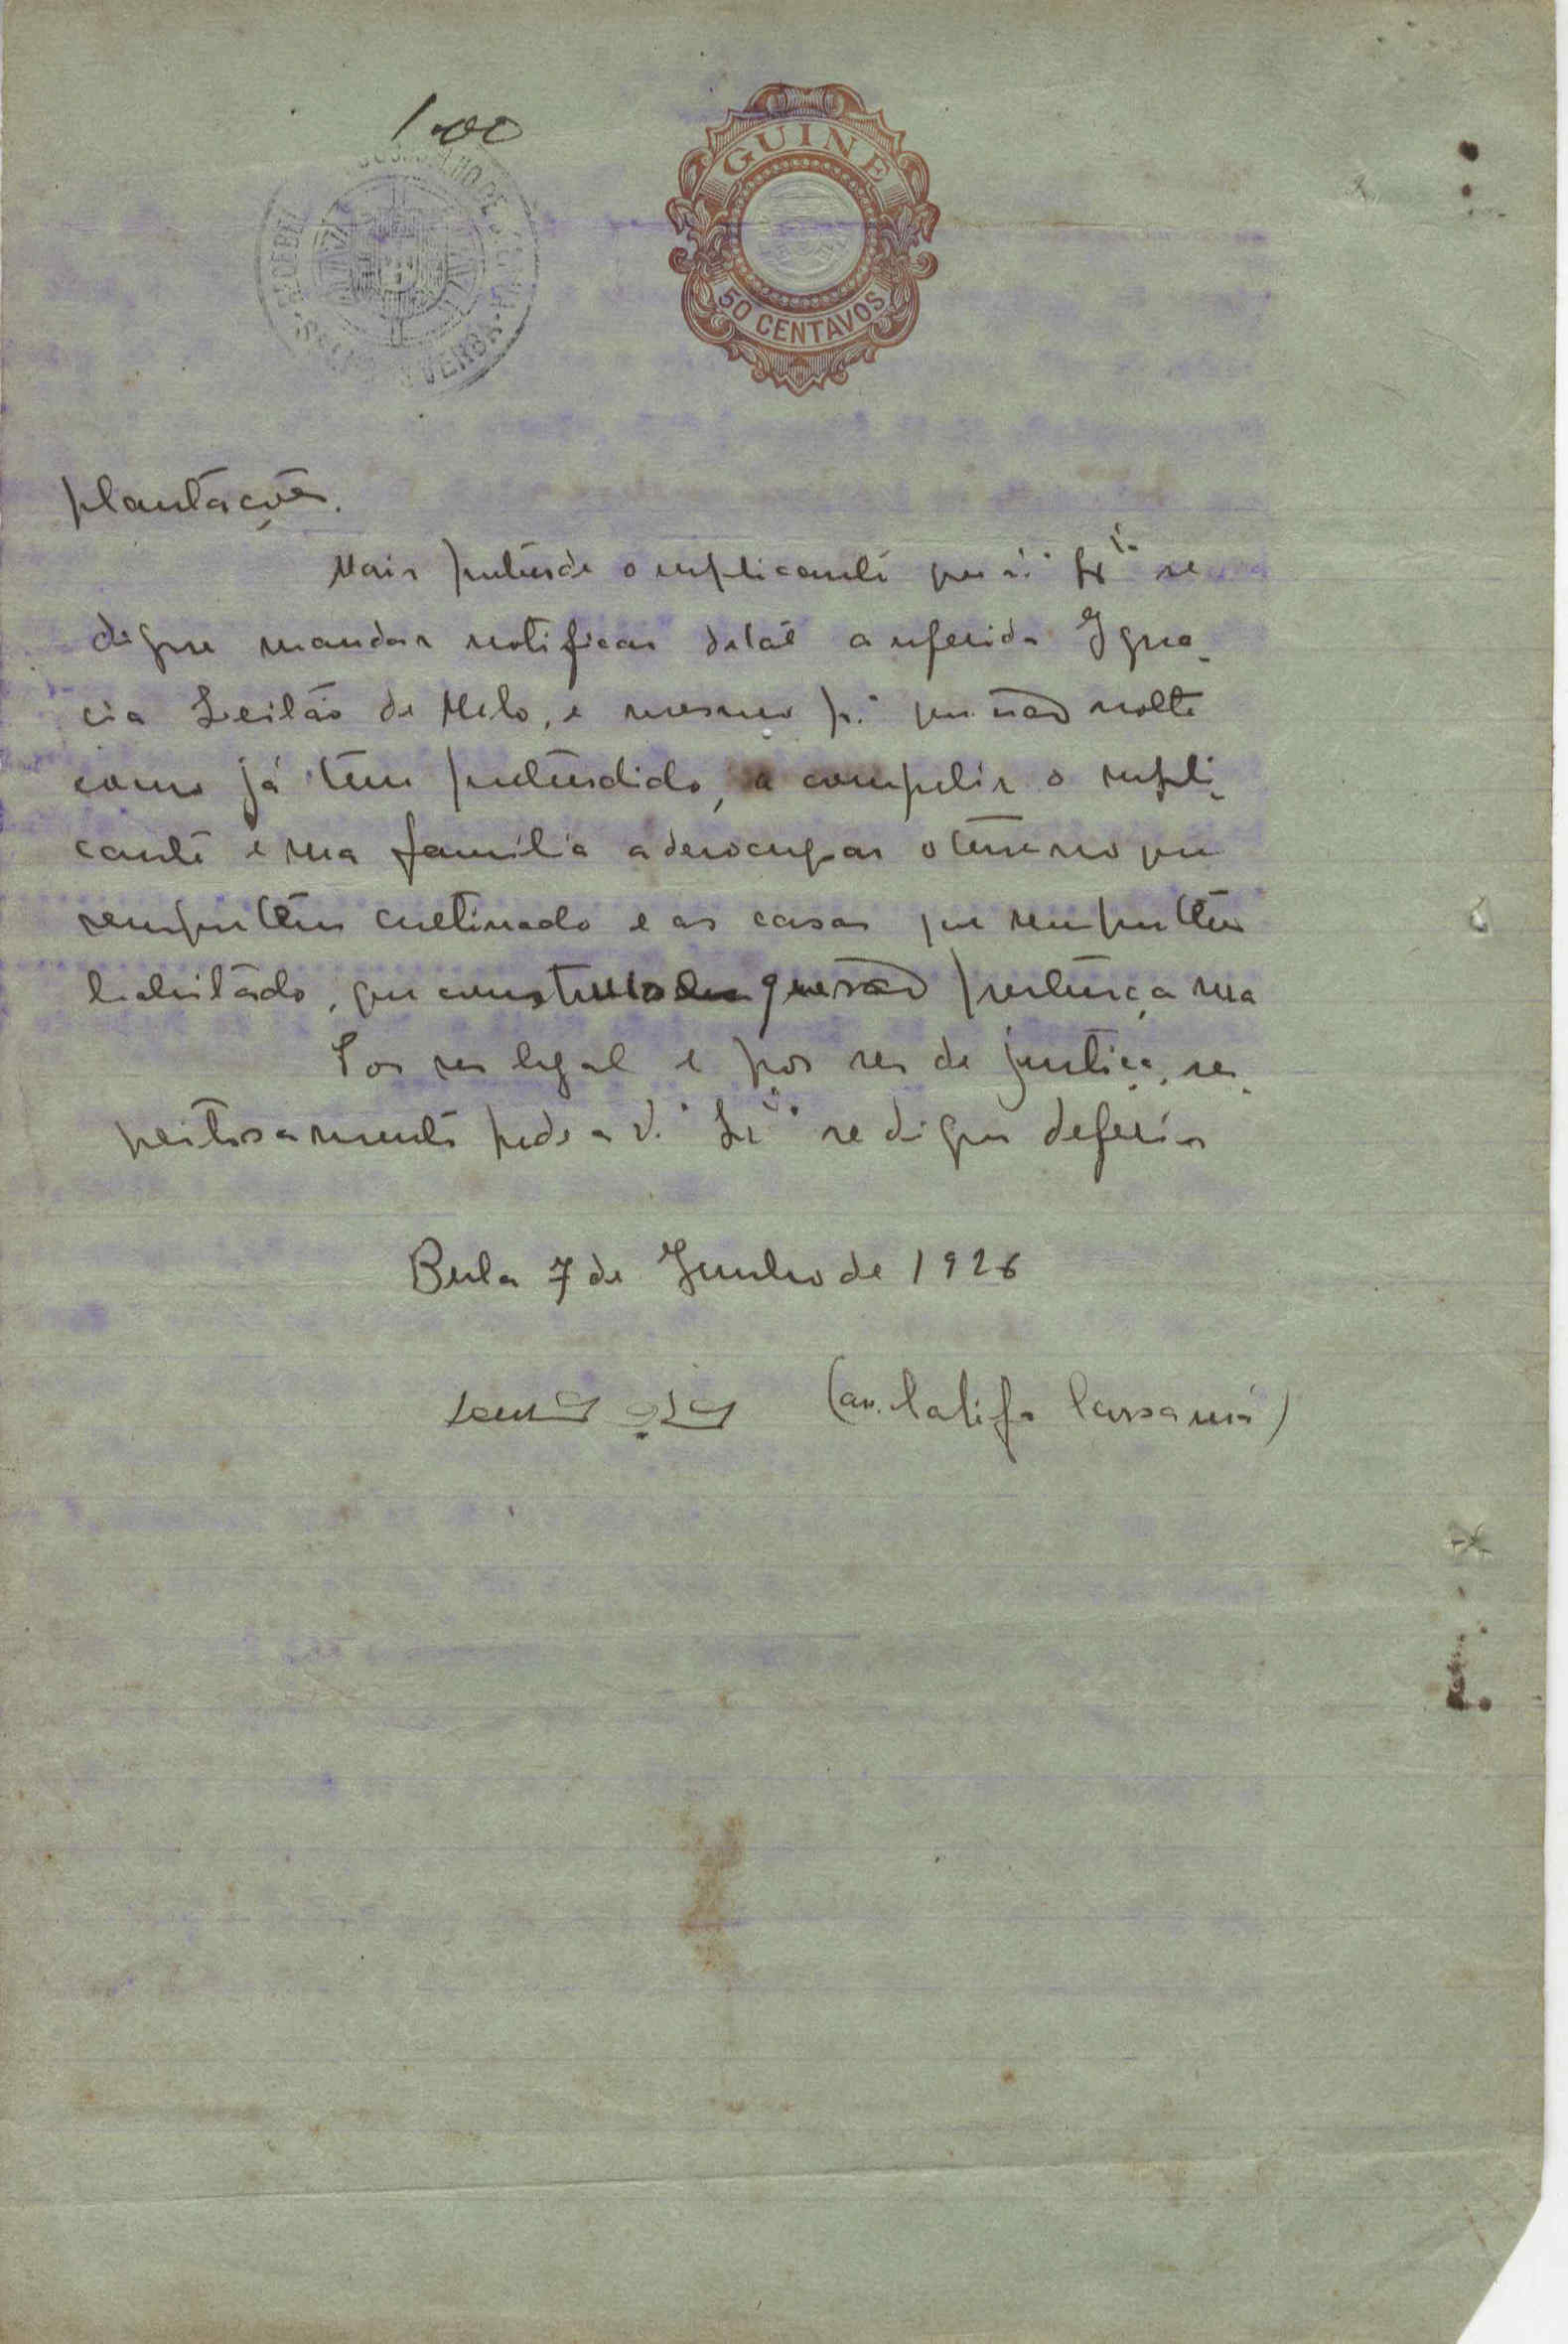 1.00
GUINE
50 CENTAVOS
plantações.
Mais pretende o suplicante que V.ª Ex.ª se
digne mandar notificar de tal a referida Igna-
cia Leilão de Melo, e mesmo p.ª que não volte
como já tem pretendido, a compelir o supli-
cante e sua familia a desocupar o terreno que
sempre têm cultivado e as casas que sempre têm
habitado, que construiu e que são pertença sua
Por ser legal e por ser de justiça, res-
peitosamente pede a V.ª Ex.ª se digne deferir
Bula 7 de Junho de 1926
(aa. Califa Cassamá)